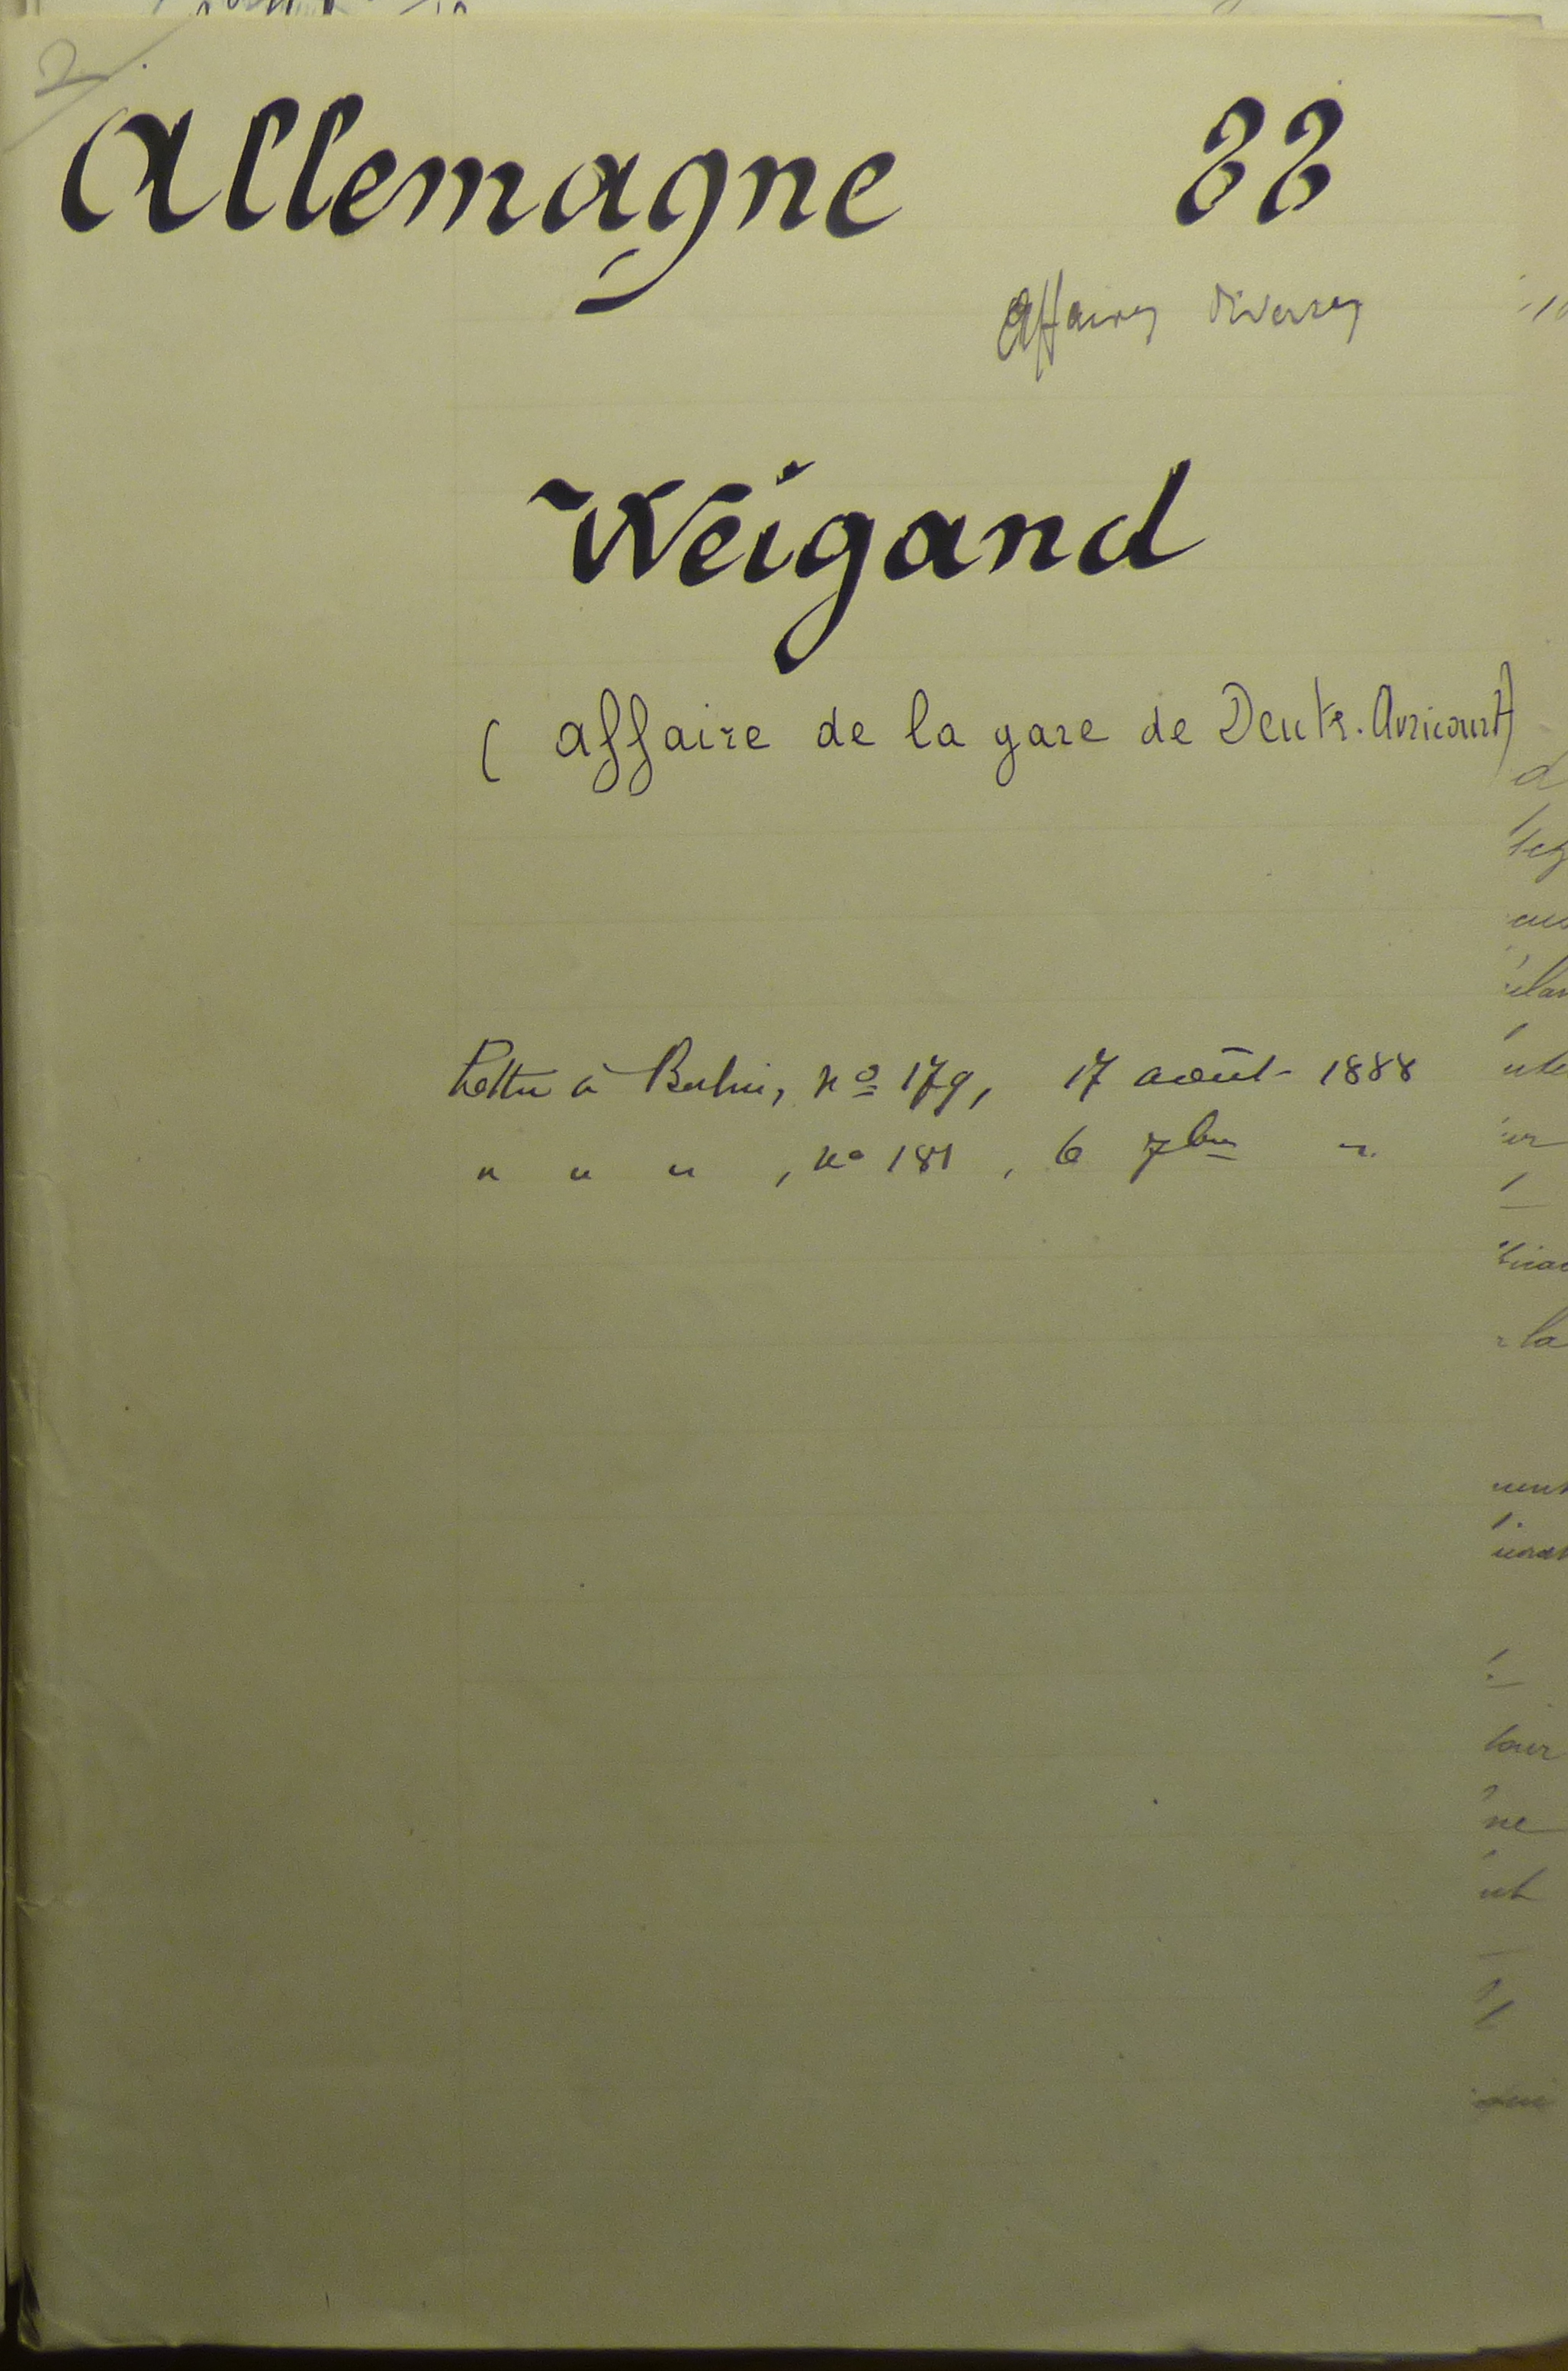 2/
Allemagne 88
Affaires diverses
Weigand
( affaire de la gare de Deuts. Avricourt)
Lettre à Berlin, no 179, 17 août 1888
" " " , no 181 , 6 7bre "